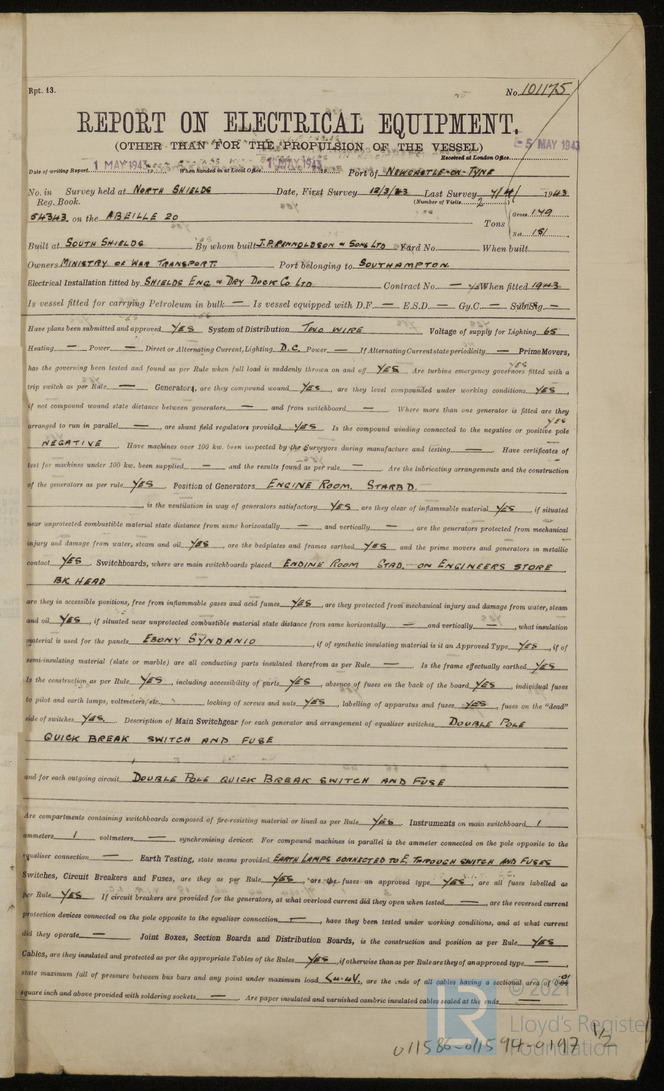 Rpt. 13.
No. 101175
REPORT ON ELECTRICAL EQUIPMENT.
(OTHER THAN FOR THE PROPULSION OF THE VESSEL)
5 MAY 1943
Received at London Office
Date of writing Report 1 MAY 1943 When handed in at Local Office 1 MAY 1943 Port of NEWCASTLE-ON-TYNE
No. in Survey held at NORTH SHIELDS Date, First Survey 12/3/43 Last Survey 7/4/ 1943
Reg. Book. (Number of Visits 2)
54343 on the ABEILLE 20 Tons Gross 179
Net 181
Built at SOUTH SHIELDS By whom built J.P. RENNOLDSON & SONS LTD Yard No. When built
Owners MINISTRY OF WAR TRANSPORT. Port belonging to SOUTHAMPTON
Electrical Installation fitted by SHIELDS ENG. & DRY DOCK CO LTD Contract No. — When fitted 1943
Is vessel fitted for carrying Petroleum in bulk — Is vessel equipped with D.F. — E.S.D. — Gy.C. — Sub.Sig. —
Have plans been submitted and approved YES System of Distribution TWO WIRE Voltage of supply for Lighting 65
Heating — Power — Direct or Alternating Current, Lighting D.C. Power — If Alternating Current state periodicity — Prime Movers,
has the governing been tested and found as per Rule when full load is suddenly thrown on and off YES Are turbine emergency governors fitted with a
trip switch as per Rule — Generators, are they compound wound YES, are they level compounded under working conditions YES,
if not compound wound state distance between generators — and from switchboard — Where more than one generator is fitted are they
arranged to run in parallel —, are shunt field regulators provided YES Is the compound winding connected to the negative or positive pole
NEGATIVE Have machines over 100 kw. been inspected by the Surveyors during manufacture and testing — Have certificates of
test for machines under 100 kw. been supplied — and the results found as per rule — Are the lubricating arrangements and the construction
of the generators as per rule YES Position of Generators ENGINE ROOM. STARBD.
is the ventilation in way of generators satisfactory YES are they clear of inflammable material YES, if situated
near unprotected combustible material state distance from same horizontally — and vertically —, are the generators protected from mechanical
injury and damage from water, steam and oil YES, are the bedplates and frames earthed YES and the prime movers and generators in metallic
contact YES Switchboards, where are main switchboards placed ENGINE ROOM STBD. ON ENGINEERS STORE
BK HEAD
are they in accessible positions, free from inflammable gases and acid fumes YES, are they protected from mechanical injury and damage from water, steam
and oil YES, if situated near unprotected combustible material state distance from same horizontally — and vertically —, what insulation
material is used for the panels EBONY SYNDANIO, if of synthetic insulating material is it an Approved Type YES, if of
semi-insulating material (slate or marble) are all conducting parts insulated therefrom as per Rule — Is the frame effectually earthed YES
Is the construction as per Rule YES, including accessibility of parts YES, absence of fuses on the back of the board YES, individual fuses
to pilot and earth lamps, voltmeters, etc. locking of screws and nuts YES, labelling of apparatus and fuses YES, fuses on the "dead"
side of switches YES. Description of Main Switchgear for each generator and arrangement of equaliser switches DOUBLE POLE
QUICK BREAK SWITCH AND FUSE
and for each outgoing circuit DOUBLE POLE QUICK BREAK SWITCH AND FUSE
Are compartments containing switchboards composed of fire-resisting material or lined as per Rule YES Instruments on main switchboard 1
ammeters 1 voltmeters — synchronising devices. For compound machines in parallel is the ammeter connected on the pole opposite to the
equaliser connection — Earth Testing, state means provided EARTH LAMPS CONNECTED TO E. THROUGH SWITCH AND FUSES
Switches, Circuit Breakers and Fuses, are they as per Rule YES, are the fuses an approved type YES, are all fuses labelled as
per Rule YES If circuit breakers are provided for the generators, at what overload current did they open when tested —, are the reversed current
protection devices connected on the pole opposite to the equaliser connection —, have they been tested under working conditions, and at what current
did they operate — Joint Boxes, Section Boards and Distribution Boards, is the construction and position as per Rule YES
Cables, are they insulated and protected as per the appropriate Tables of the Rules YES, if otherwise than as per Rule are they of an approved type —,
state maximum fall of pressure between bus bars and any point under maximum load <4.4V., are the ends of all cables having a sectional area of
square inch and above provided with soldering sockets — Are paper insulated and varnished cambric insulated cables sealed at the ends —
© 2021
Lloyd's Register
Foundation
1/2
011586-011594-0197